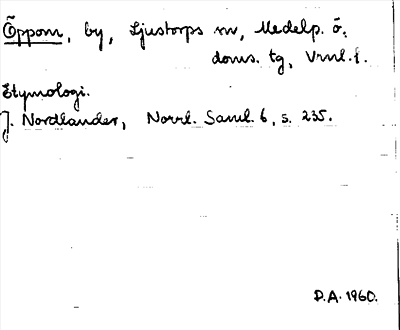 Öppom, by, Ljustorps sn, Medelp. ö.
doms. tg, Vrnl. f.
Etymologi.
J. Nordlander, Norrl. Saml. 6, s. 235.
D.A. 1960.